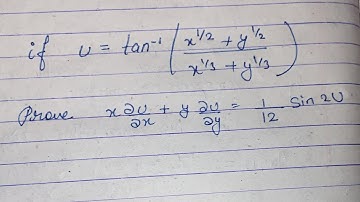 if u = tan⁻¹ ( (x^1/2 + y^1/2) / (x^1/3 + y^1/3) )
Prove x ∂u/∂x + y ∂u/∂y = 1/12 Sin 2u